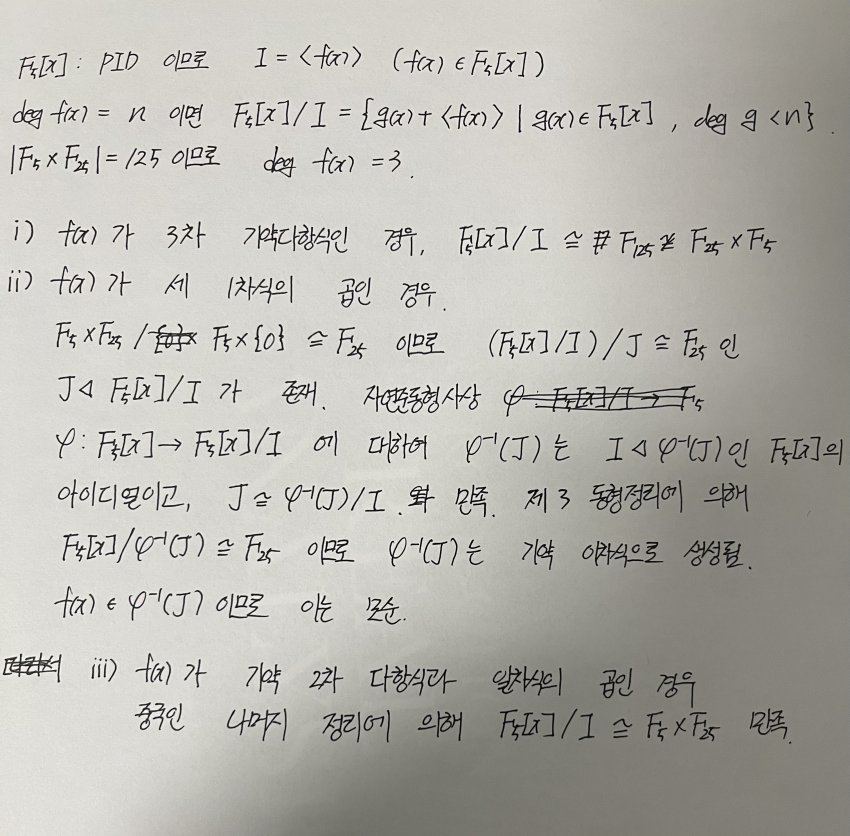 F₅[x] : PID 이므로 I = <f(x)> (f(x) ∈ F₅[x])
deg f(x) = n 이면 F₅[x]/I = {g(x) + <f(x)> | g(x) ∈ F₅[x], deg g < n}.
|F₅ × F₂₅| = 125 이므로 deg f(x) = 3.
i) f(x) 가 3차 기약다항식인 경우, F₅[x]/I ≅ F₁₂₅ ≇ F₂₅ × F₅
ii) f(x) 가 세 1차식의 곱인 경우.
F₅ × F₂₅ / F₅ × {0} ≅ F₂₅ 이므로 (F₅[x]/I)/J ≅ F₂₅ 인
J ◁ F₅[x]/I 가 존재. 자연준동형사상
φ : F₅[x] → F₅[x]/I 에 대하여 φ⁻¹(J) 는 I ◁ φ⁻¹(J) 인 F₅[x]의
아이디얼이고, J ≅ φ⁻¹(J)/I. 만족. 제 3 동형정리에 의해
F₅[x]/φ⁻¹(J) ≅ F₂₅ 이므로 φ⁻¹(J)는 기약 이차식으로 생성됨.
f(x) ∈ φ⁻¹(J) 이므로 이는 모순.
iii) f(x) 가 기약 2차 다항식과 일차식의 곱인 경우
중국인 나머지 정리에 의해 F₅[x]/I ≅ F₅ × F₂₅ 만족.